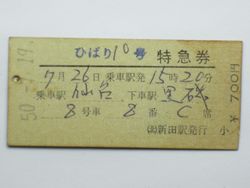 ひばり10号 特急券
7月26日 乗車駅発 15時20分
乗車駅 仙台 下車駅 黒磯
8号車 8番 C席
新田駅発行 小
¥700
50.-7.19